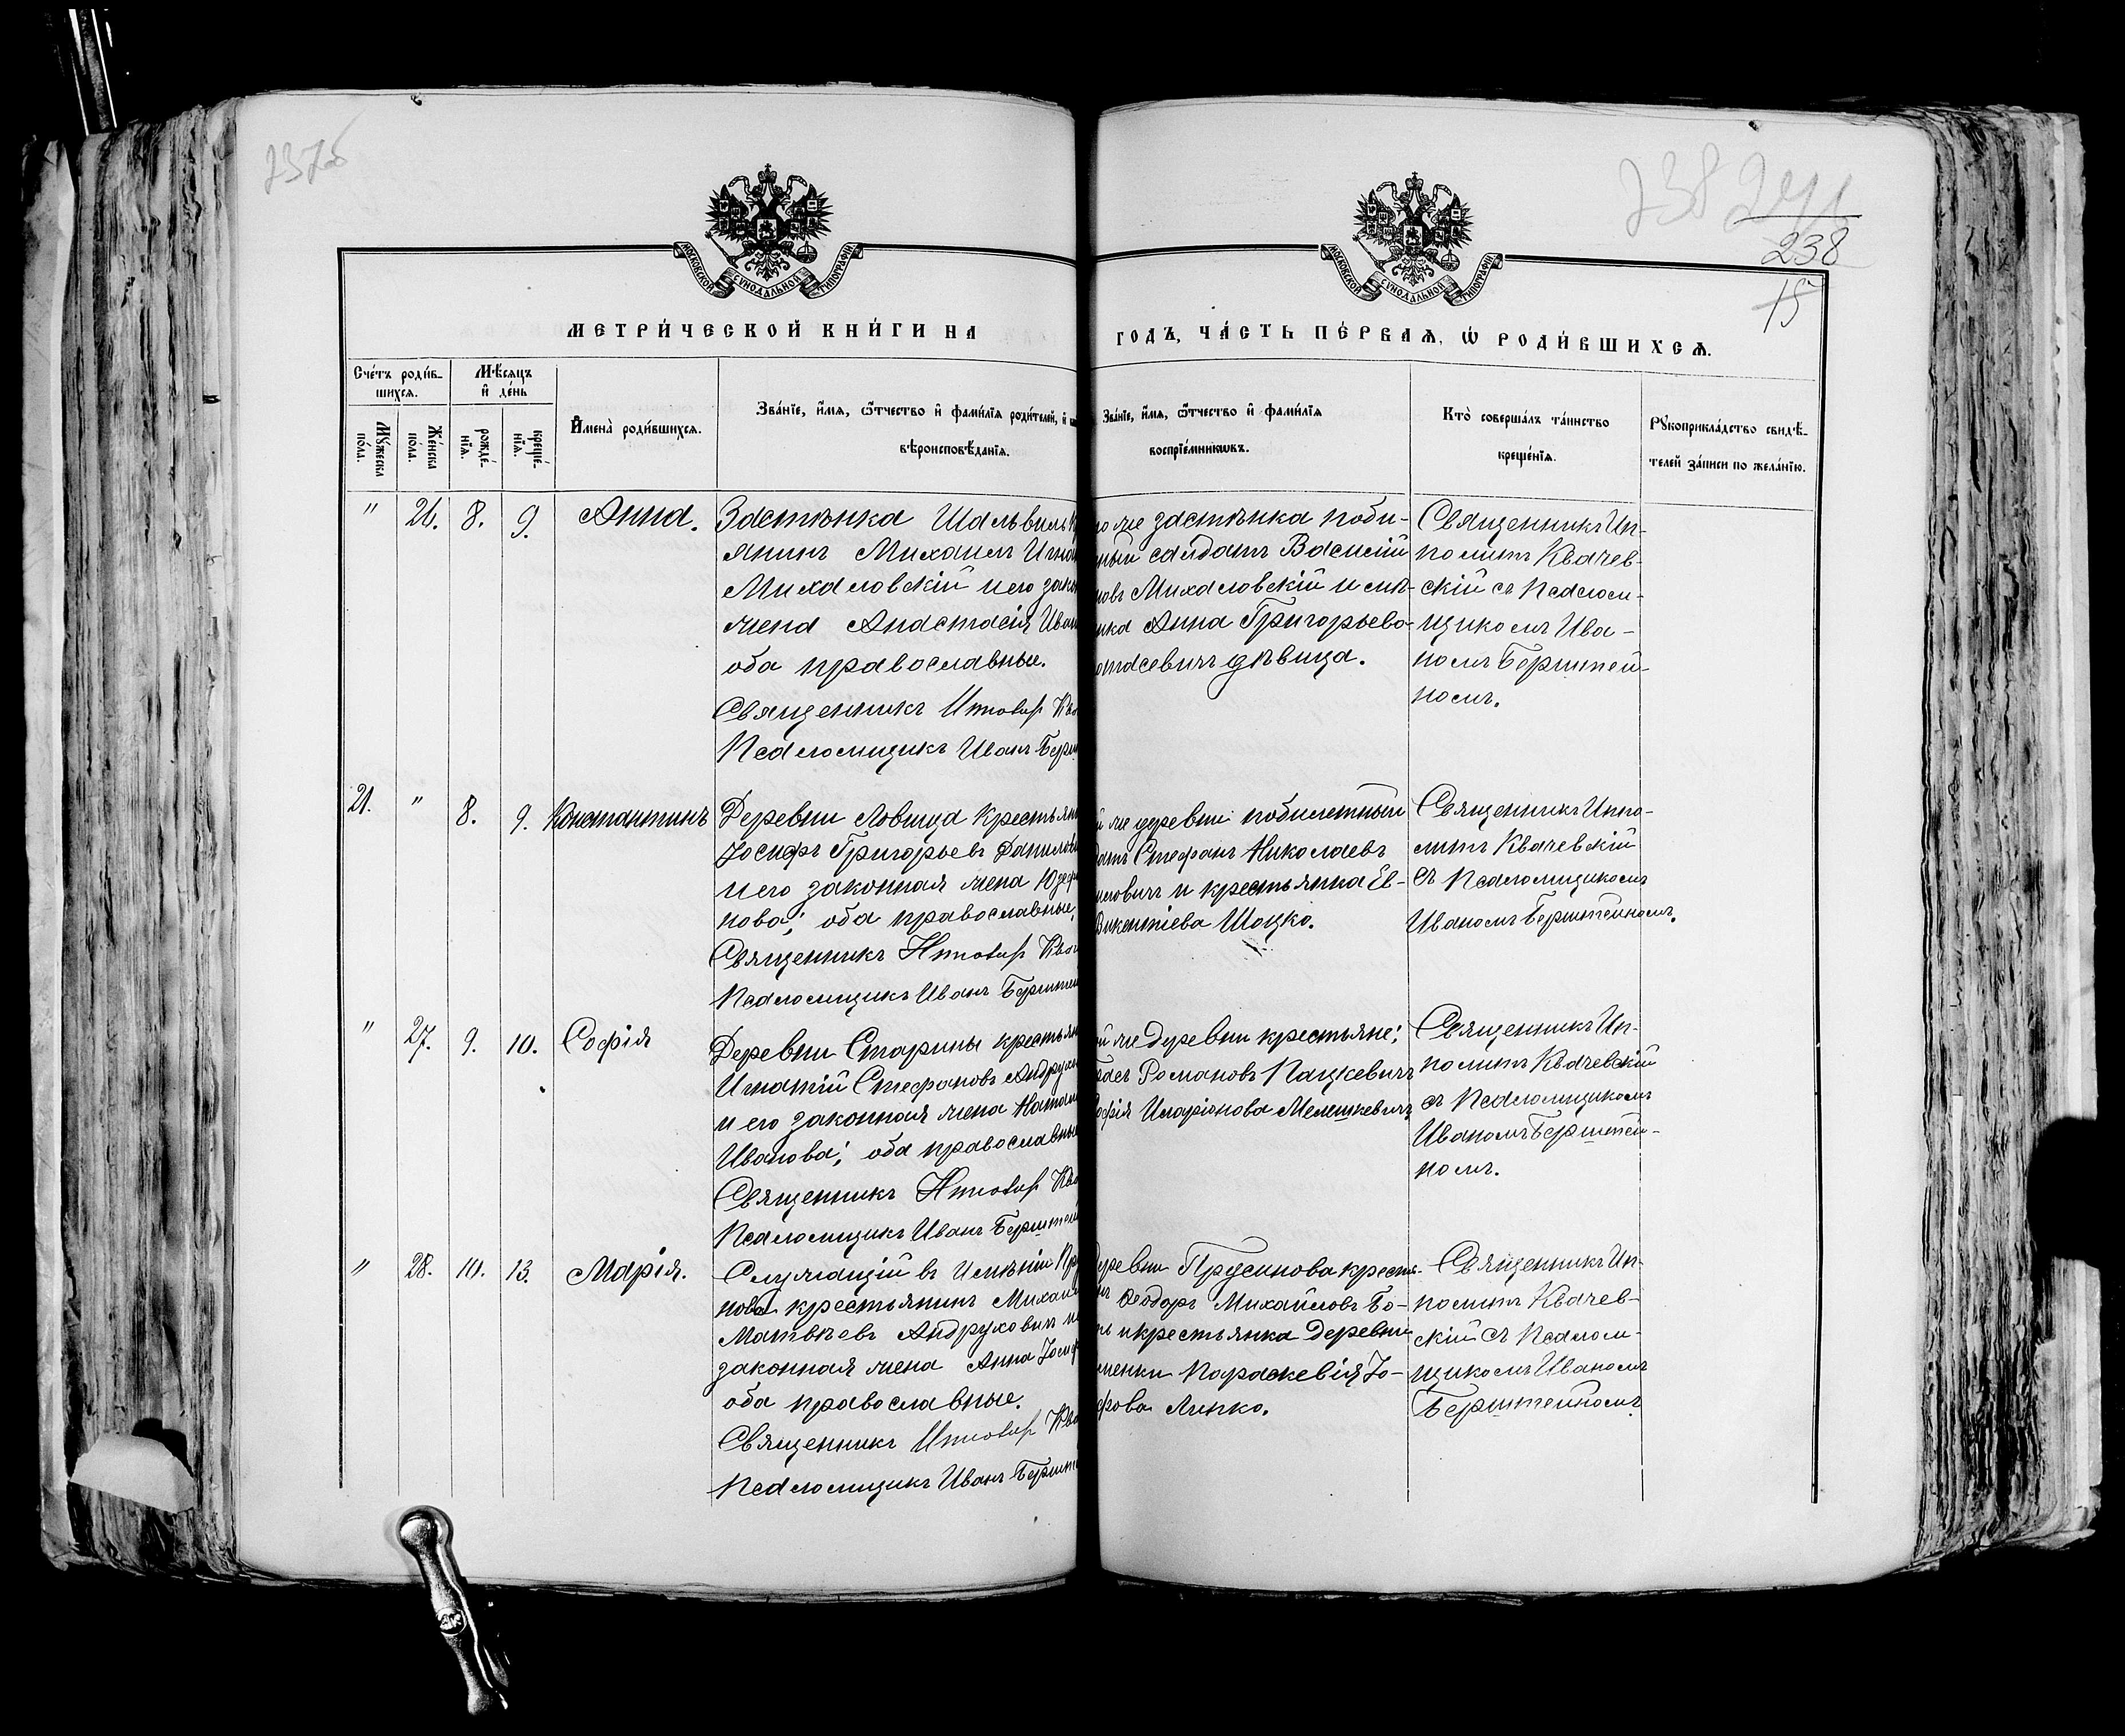 238
238
15
МОСКОВСКОЙ СѴНОДАЛЬНОЙ ТИПОГРАФІИ
МОСКОВСКОЙ СѴНОДАЛЬНОЙ ТИПОГРАФІИ
МЕТРИ́ЧЕСКОЙ КНИ́ГИ НА
ГОДЪ, ЧА́СТЬ ПЕ́РВАѦ, Ѡ РОДИ́ВШИХСѦ.
Сче́тъ роди́в-
шихсѧ.
Мꙋ́жеска по́ла.
Же́нска по́ла.
Мѣ́сѧцъ
и҆ де́нь
рожде́-
нїѧ.
креще́-
нїѧ.
И҆мена̀ роди́вшихсѧ.
Зва́нїе, и҆́мѧ, ѻ҆́тчество и҆ фами́лїѧ роди́телей, и҆
вѣроисповѣ́данїѧ.
Зва́нїе, и҆́мѧ, ѻ҆́тчество и҆ фами́лїѧ
воспрїе́мникѡвъ.
Кто̀ соверша́лъ та́инство
креще́нїѧ.
Рꙋкоприкла́дство свидѣ́-
телей за́писи по жела́нїю.
" 26. 8. 9. Анна.
Застѣнка
янинъ Михаилъ Игна
Михаловскій и его зако
жена Анастасія Иван
оба православные.
Священникъ Ипполитъ Ква
Псаломщикъ Иванъ Берш
го же застѣнка поби-
тный солдатъ Василій
новъ Михаловскій и мѣ-
нка Анна Григорьева
отасевичъ дѣвица.
Священникъ Ип-
политъ Квачев-
скій съ Псалом-
щикомъ Ива-
номъ Берштей-
номъ.
21. " 8. 9. Константинъ
Деревни Ловища крестьян
Іосифъ Григорьевъ Данилов
и его законная жена Юзеф
нова; оба православные,
Священникъ Ипполитъ Квач
Псаломщикъ Иванъ Берштей
й же деревни побилетный
датъ Стефанъ Николаевъ
иловичъ и крестьянка Ев-
Викентіева Шоцко.
Священникъ Иппо-
литъ Квачевскій
съ Псаломщикомъ
Иваномъ Берштейномъ.
" 27. 9. 10. Софія
Деревни Старины крестьян
Игнатій Стефановъ Андрухо
и его законная жена Натал
Иванова; оба православные
Священникъ Ипполитъ Ква
Псаломщикъ Иванъ Берштей
й же деревни крестьяне;
Романовъ Пацкевичъ
офія Иларіонова Мелешкевичъ
Священникъ Ип-
политъ Квачевскій
съ Псаломщикомъ
Иваномъ Берштей-
номъ.
" 28. 10. 13. Марія.
Служащій въ имѣніи Пру
нова крестьянинъ Михаил
Матвѣевъ Андруховичъ и
законная жена Анна Іосиф
оба православные.
Священникъ Ипполитъ Ква
Псаломщикъ Иванъ Бершт
деревни Прусинова крестья-
нъ Ѳеодоръ Михайловъ Бо-
нь и крестьянка деревни
менки Параскевія Іо-
фова Липко.
Священникъ Ип-
политъ Квачев-
скій съ Псалом-
щикомъ Иваномъ
Берштейномъ